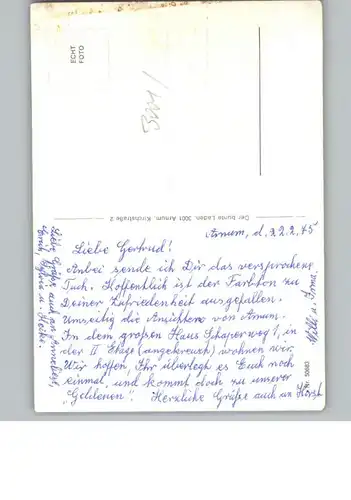 ECHT
FOTO
Der bunte Laden, 3001 Arnum, Kirchstraße 2
Arnum, d. 22.2.75
Liebe Gertrud!
Anbei sende ich Dir das versprochene
Tuch. Hoffentlich ist der Farbton zu
Deiner Zufriedenheit ausgefallen.
Umseitig die Ansichten von Arnum.
In dem großen Haus Schaperweg 1, in
der II Etage (angekreuzt) wohnen wir.
Wir hoffen, Ihr überlegt es Euch noch
einmal, und kommt doch zu unserer
"Goldenen". Herzliche Grüße auch an Horst
Liebe Grüße auch an Anneliese,
u. Heike.